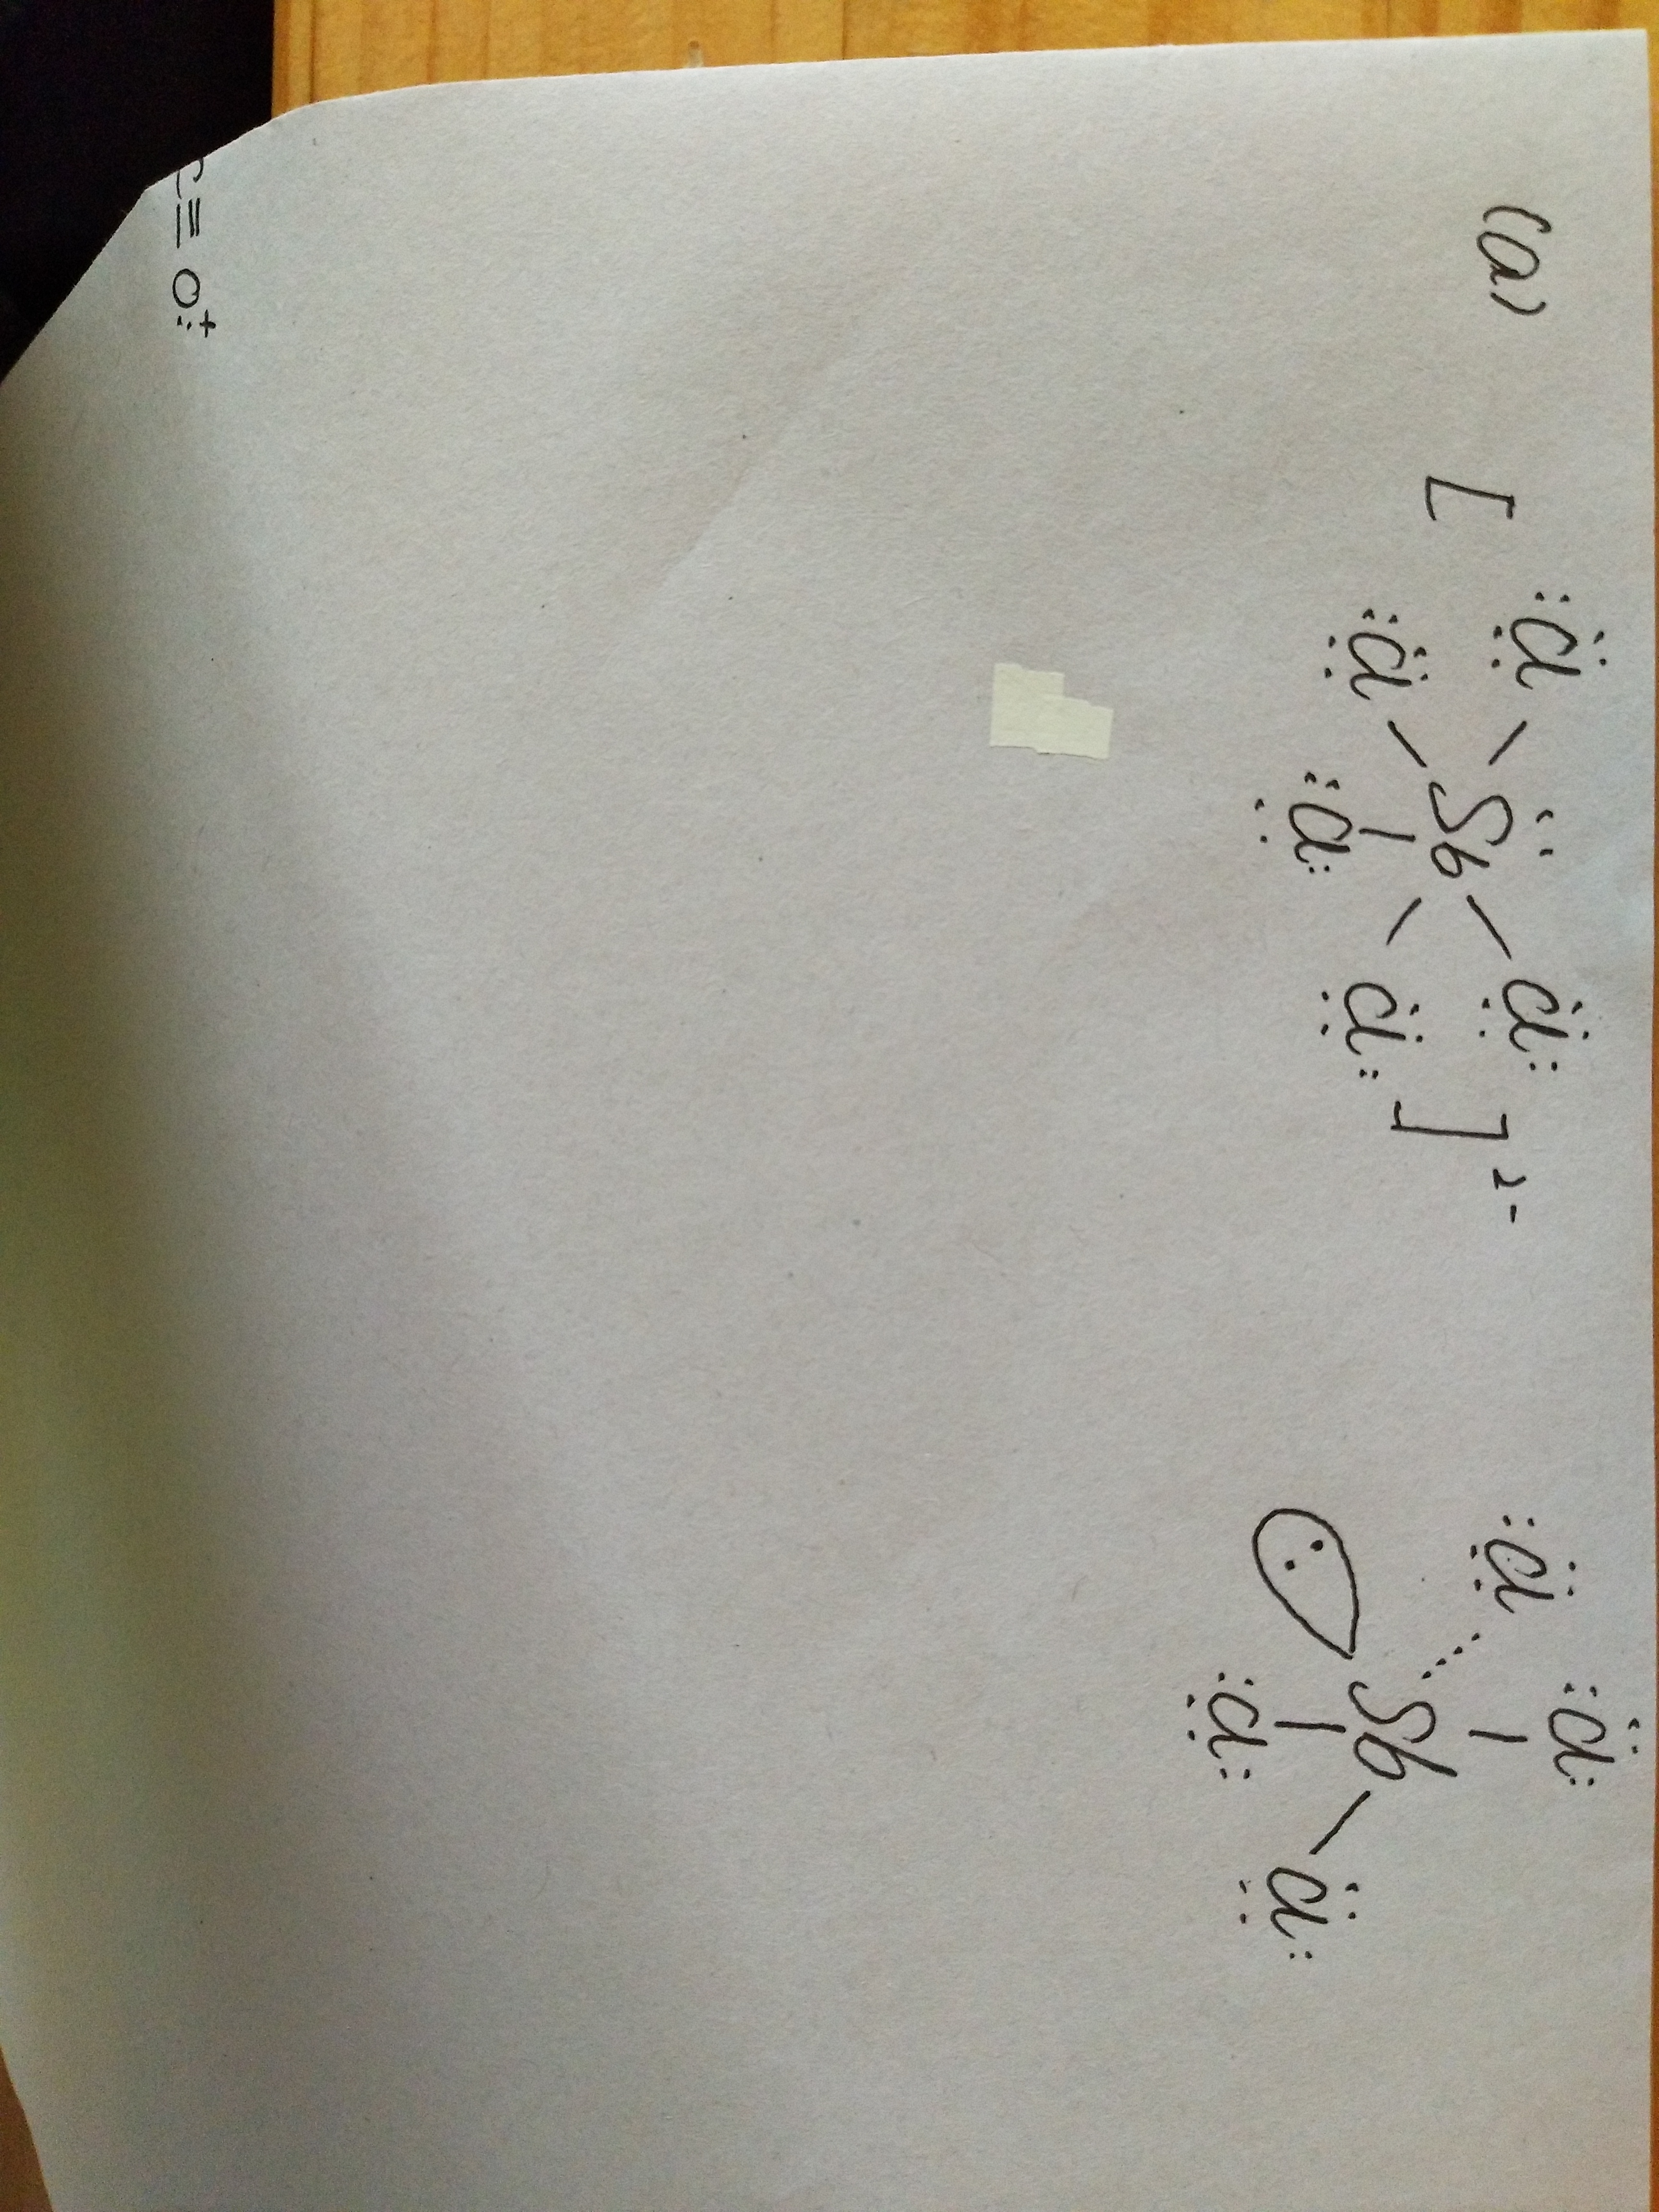 (a)
[ :Cl: :Cl: Sb :Cl: :Cl: :Cl: ]2-
:Cl: :Cl: Sb :Cl: :Cl:
C≡O:+